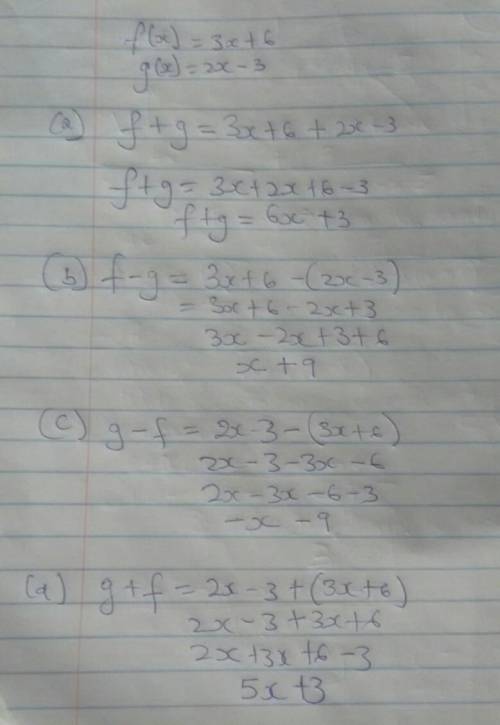 f(x) = 3x+6
g(x) = 2x-3
(a) f+g = 3x+6 + 2x-3
f+g = 3x+2x+6-3
f+g = 6x +3
(b) f-g = 3x+6 -(2x-3)
= 3x+6-2x+3
3x-2x+3+6
x +9
(c) g-f = 2x-3-(3x+6)
2x-3-3x-6
2x-3x-6-3
-x -9
(d) g+f = 2x-3+(3x+6)
2x-3+3x+6
2x+3x+6-3
5x+3